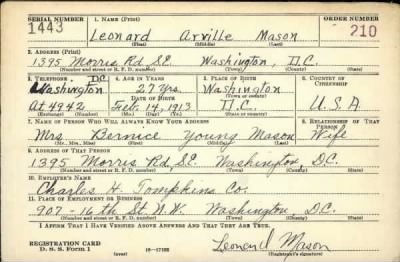 SERIAL NUMBER 1. NAME (Print) ORDER NUMBER
1443 Leonard Arville Mason 210
(First) (Middle) (Last)
2. ADDRESS (Print)
1395 Morris Rd SE Washington, D.C.
(Number and street or R. F. D. number) (Town) (County) (State)
3. TELEPHONE 4. AGE IN YEARS 5. PLACE OF BIRTH 6. COUNTRY OF CITIZENSHIP
D.C.
Washington 27 Yrs. Washington
DATE OF BIRTH
At 4942 Feb. 14, 1913 D.C. U.S.A
(Exchange) (Number) (Mo.) (Day) (Yr.) (State or country)
7. NAME OF PERSON WHO WILL ALWAYS KNOW YOUR ADDRESS 8. RELATIONSHIP OF THAT PERSON
Mrs. Bernice Young Mason Wife
(Mr., Mrs., Miss) (First) (Middle) (Last)
9. ADDRESS OF THAT PERSON
1395 Morris Rd, S.E. Washington, D.C.
(Number and street or R. F. D. number) (Town) (County) (State)
10. EMPLOYER'S NAME
Charles H. Tompkins Co.
11. PLACE OF EMPLOYMENT OR BUSINESS
907-16th St N.W. Washington, D.C.
(Number and street or R. F. D. number) (Town) (County) (State)
I AFFIRM THAT I HAVE VERIFIED ABOVE ANSWERS AND THAT THEY ARE TRUE.
REGISTRATION CARD
D. S. S. Form 1 (over) Leonard Mason
(Registrant's signature)